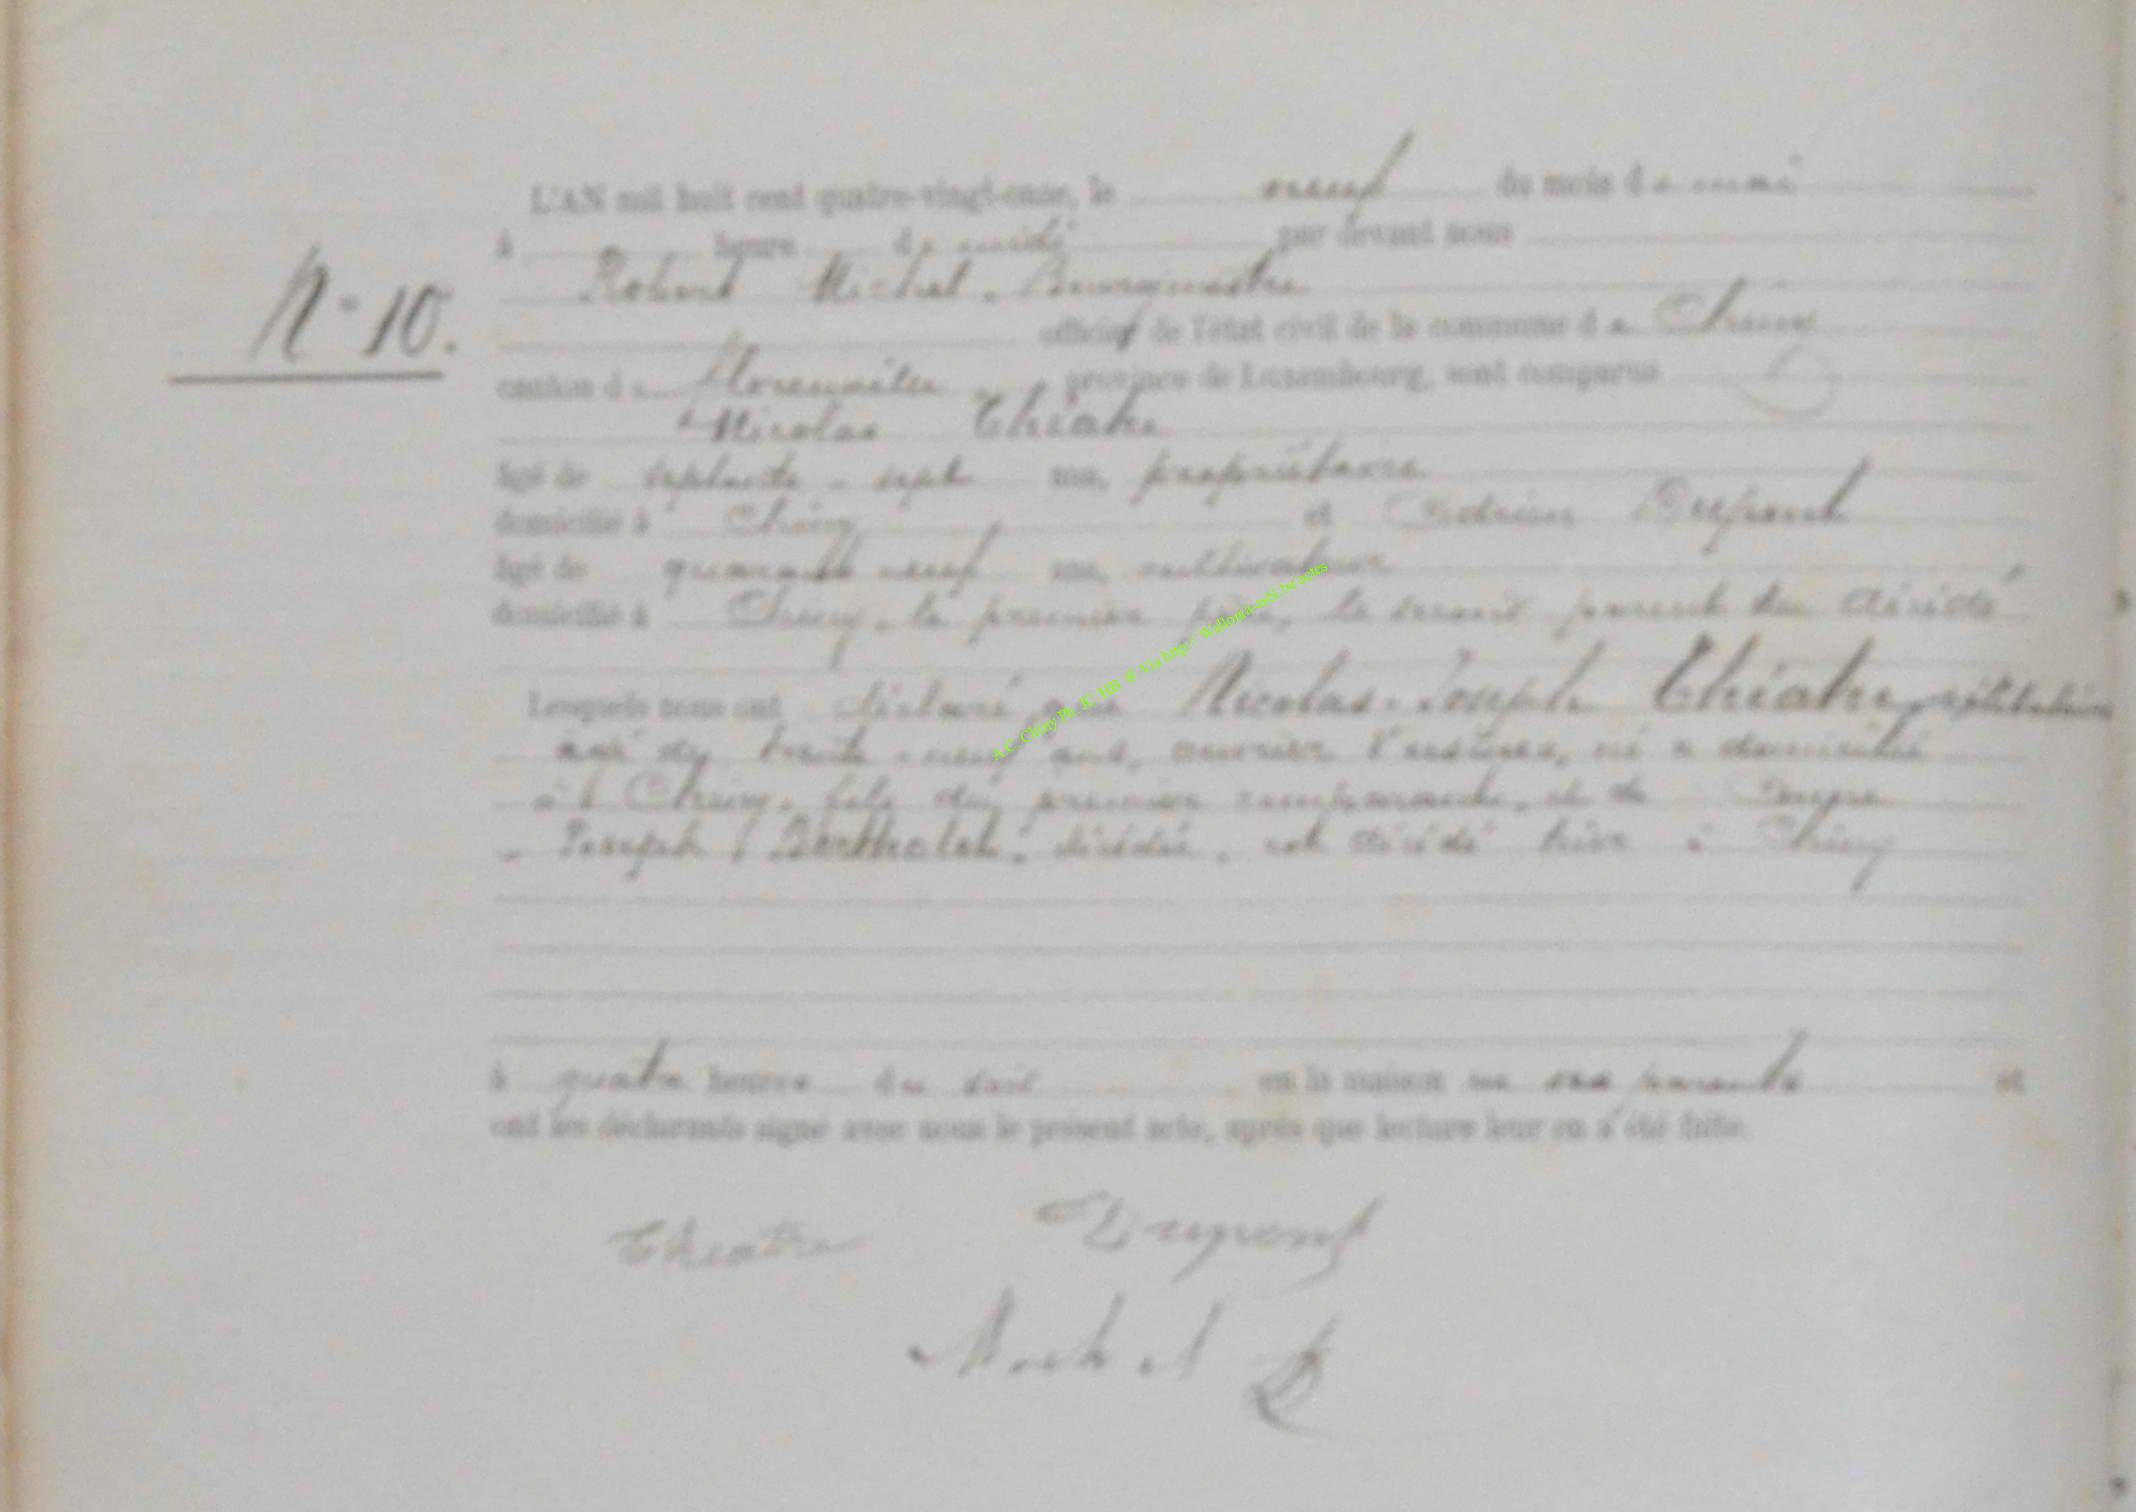 L'AN mil huit cent quatre-vingt-onze, le neuf du mois de mai
à heure de midi par devant nous
N° 10.
Robert Michel, Bourgmestre
officier de l'état civil de la commune de Chiny
canton de Florenville province de Luxembourg, sont comparus
Nicolas Théatre
âgé de septante-sept ans, propriétaire
domicilié à Chiny et Adrien Dupont
âgé de quarante neuf ans, cultivateur
domicilié à Chiny, le premier père, le second parent du décédé
Lesquels nous ont déclaré que Nicolas-Joseph Théatre, célibataire
âgé de trente-neuf ans, ouvrier d'usines, né et domicilié
à Chiny, fils du premier comparant, et de
Joseph Bertholet, décédée, est décédé hier à Chiny
à quatre heures du soir en la maison de ses parents et
ont les déclarants signé avec nous le présent acte, après que lecture leur en a été faite.
Théatre Dupont
Michel R
A.C. Chiny Ph. KI-HB @ Via http://